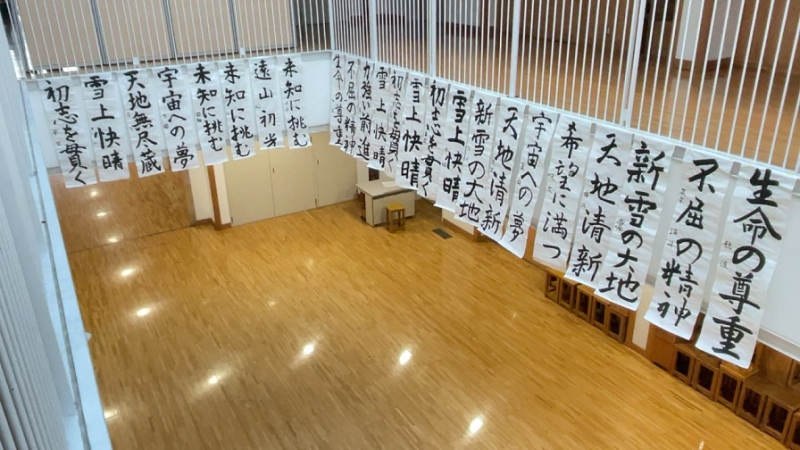 生命の尊重
不屈の精神
新雪の大地
天地清新
希望に満つ
宇宙への夢
天地清新
新雪の大地
雪上快晴
初志を貫く
雪上快晴
初志を貫く
雪上快晴
力強い前進
不屈の精神
生命の尊重
未知に挑む
遠山初光
未知に挑む
未知に挑む
宇宙への夢
天地無尽蔵
雪上快晴
初志を貫く